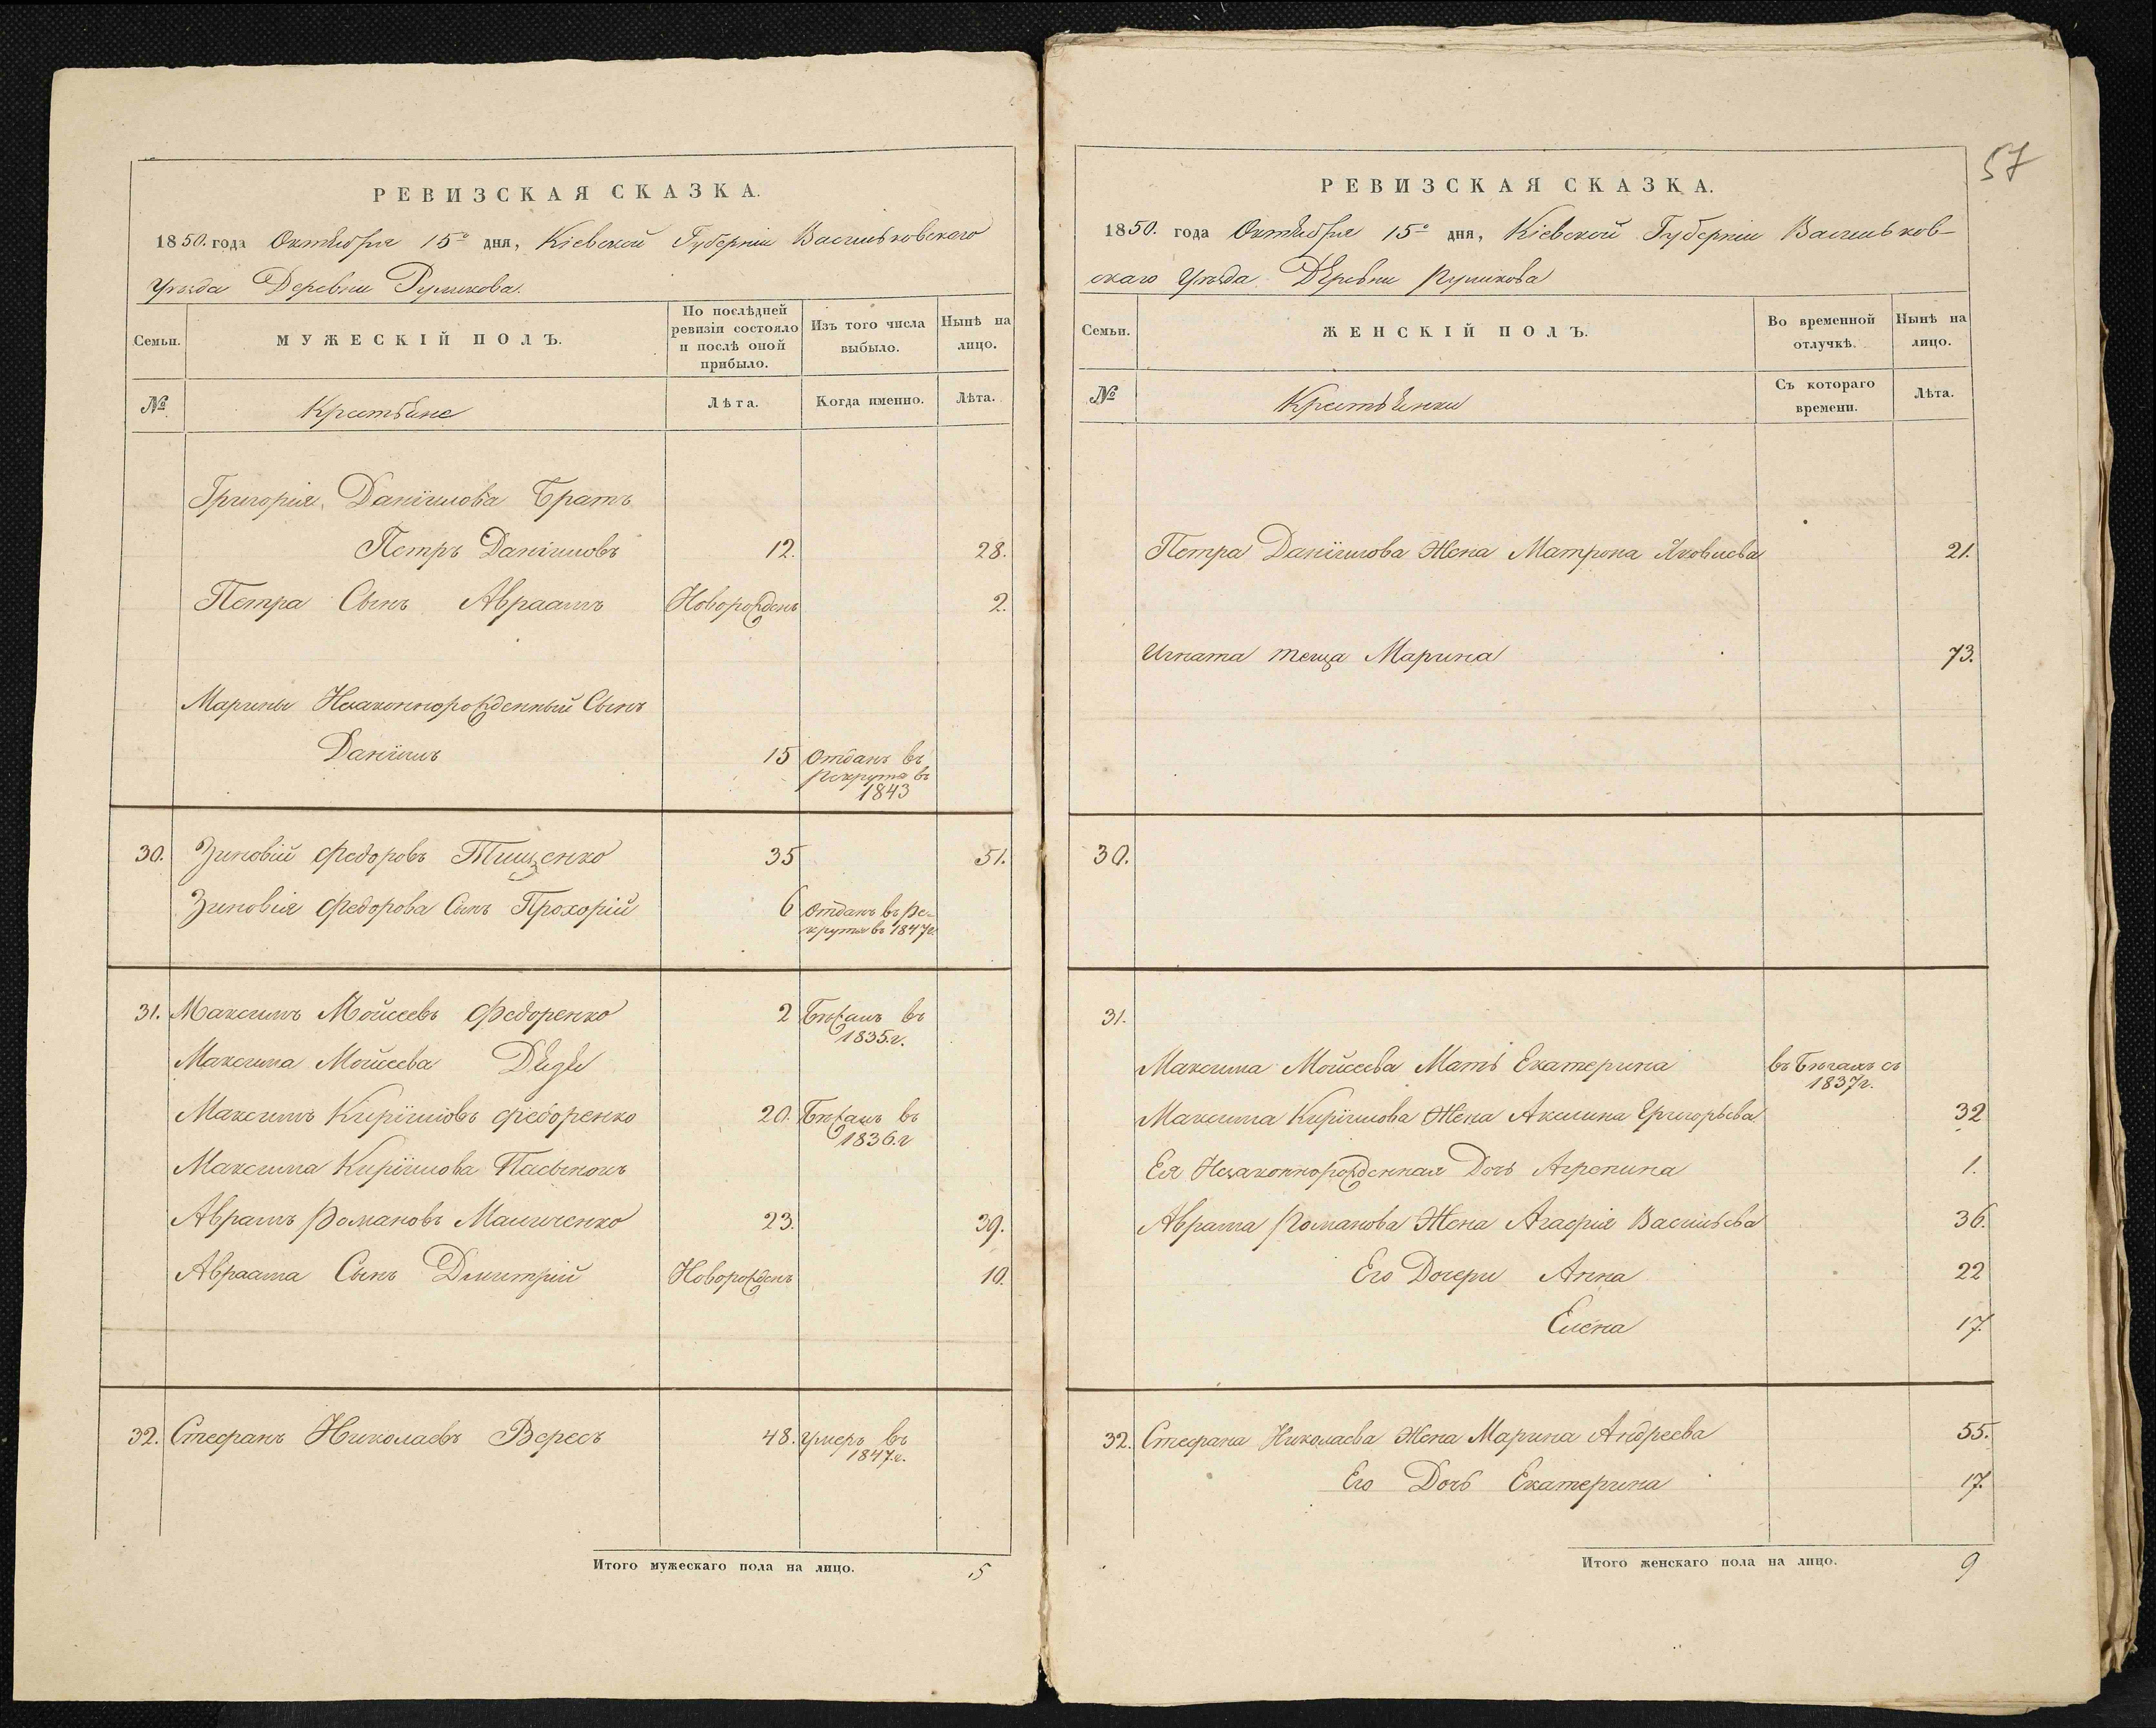 РЕВИЗСКАЯ СКАЗКА.
1850. года Октября 15го дня, Кіевской Губерніи Васильковскаго
Уѣзда Деревни Руликова.
Семьи.
МУЖЕСКІЙ ПОЛЪ.
По послѣдней ревизіи состояло и послѣ оной прибыло.
Изъ того числа выбыло.
Нынѣ на лицо.
№
Крестьяне
Лѣта.
Когда именно.
Лѣта.
Григорія Даніилова Братъ
Петръ Даніиловъ 12. 28.
Петра Сынъ Авраамъ Новорожденъ 2.
Марины Незаконнорожденный Сынъ
Даніилъ 15 Отданъ въ
рекруты въ
1843
30. Зиновій Федоровъ Тищенко 35 51.
Зиновія Федорова Сынъ Прохорій 6 отданъ въ ре-
круты въ 1847г.
31. Максимъ Мойсеевъ Федоренко 2 Бѣжалъ въ
1835.г.
Максима Мойсеева Дядя
Максимъ Киріиловъ Федоренко 20. Бѣжалъ въ
1836.г
Максима Киріилова Пасынокъ
Аврамъ Романовъ 23. 39.
Авраама Сынъ Димитрій Новорожденъ 10.
32. Стефанъ Николаевъ Вересъ 48. умеръ въ
1847.г.
Итого мужескаго пола на лицо. 5
57
РЕВИЗСКАЯ СКАЗКА.
1850. года Октября 15го дня, Кіевской Губерніи Васильков-
скаго Уѣзда Деревни Руликова
Семьи.
ЖЕНСКІЙ ПОЛЪ.
Во временной отлучкѣ.
Нынѣ на лицо.
№
Крестьянки
Съ котораго времени.
Лѣта.
Петра Даніилова Жена Матрона Яковлева 21.
Игната теща Марина 73.
30.
31.
Максима Мойсеева Мать Екатерина въ Бѣгахъ съ
1837г.
Максима Киріилова Жена Акилина Григорьева 32
Ея Незаконнорожденная Дочь Агрепина 1.
Аврама Романова Жена Агафія Васильева 36.
Его Дочери Анна 22
Елена 17.
32. Стефана Николаева Жена Марина Андреева 55.
Его Дочь Екатерина 17.
Итого женскаго пола на лицо. 9